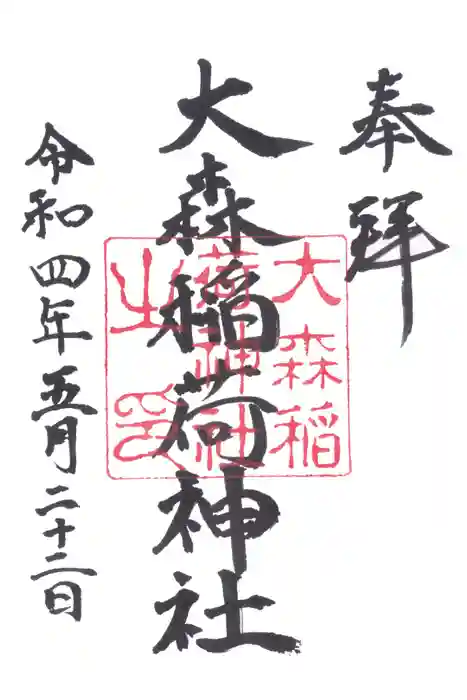 奉拝
大森稲荷神社
大森稲
荷神社
之印
令和四年五月二十二日